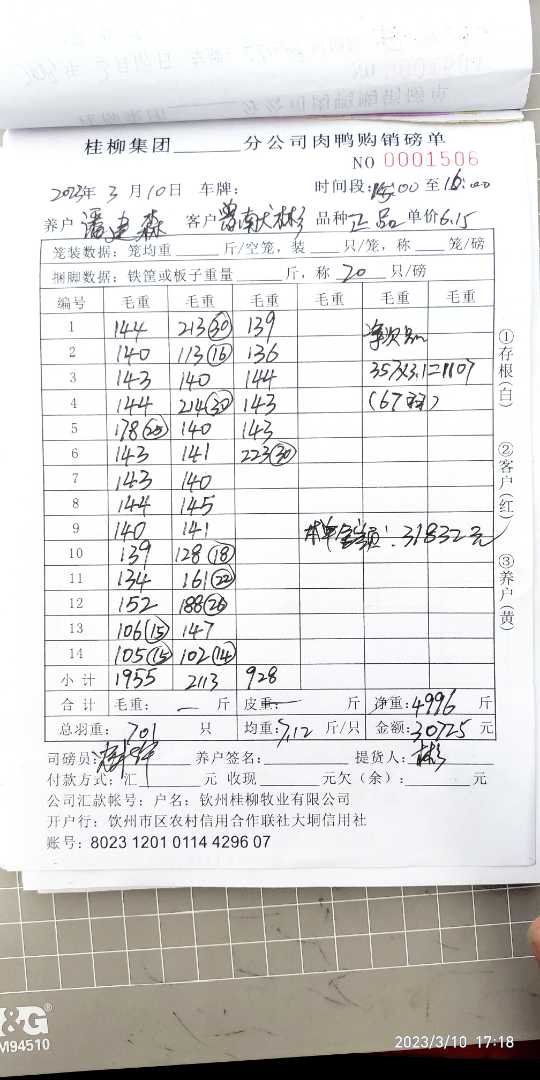 桂柳集团______分公司肉鸭购销磅单
NO 0001506
2023年3月10日 车牌: 时间段:15:00至16:00
养户 潘建森 客户 曾南大彬 品种 正品 单价6.15
笼装数据: 笼均重____斤/空笼, 装____只/笼, 称____笼/磅
捆脚数据: 铁筐或板子重量____斤, 称 20 只/磅
编号 毛重 毛重 毛重 毛重 毛重 毛重
1 144 213(30) 139
2 140 113(16) 136
3 143 140 144 357X3.1=1107
4 144 214(30) 143 (67羽)
5 178(25) 140 143
6 143 141 223(30)
7 143 140
8 144 145
9 140 141 31832元
10 139 128(18)
11 134 161(22)
12 152 188(26)
13 106(15) 147
14 105(15) 102(14)
小计 1955 2113 928
合计 毛重: — 斤 皮重: — 斤 净重:4996 斤
总羽重: 701 只 均重:7.12 斤/只 金额:30725 元
司磅员: 养户签名: 提货人: 彬
付款方式: 汇______元 收现______元欠(余):______元
公司汇款帐号: 户名: 钦州桂柳牧业有限公司
开户行: 钦州市区农村信用合作联社大垌信用社
账号: 8023 1201 0114 4296 07
①存根(白)
②客户(红)
③养户(黄)
&G
M94510
2023/3/10 17:18